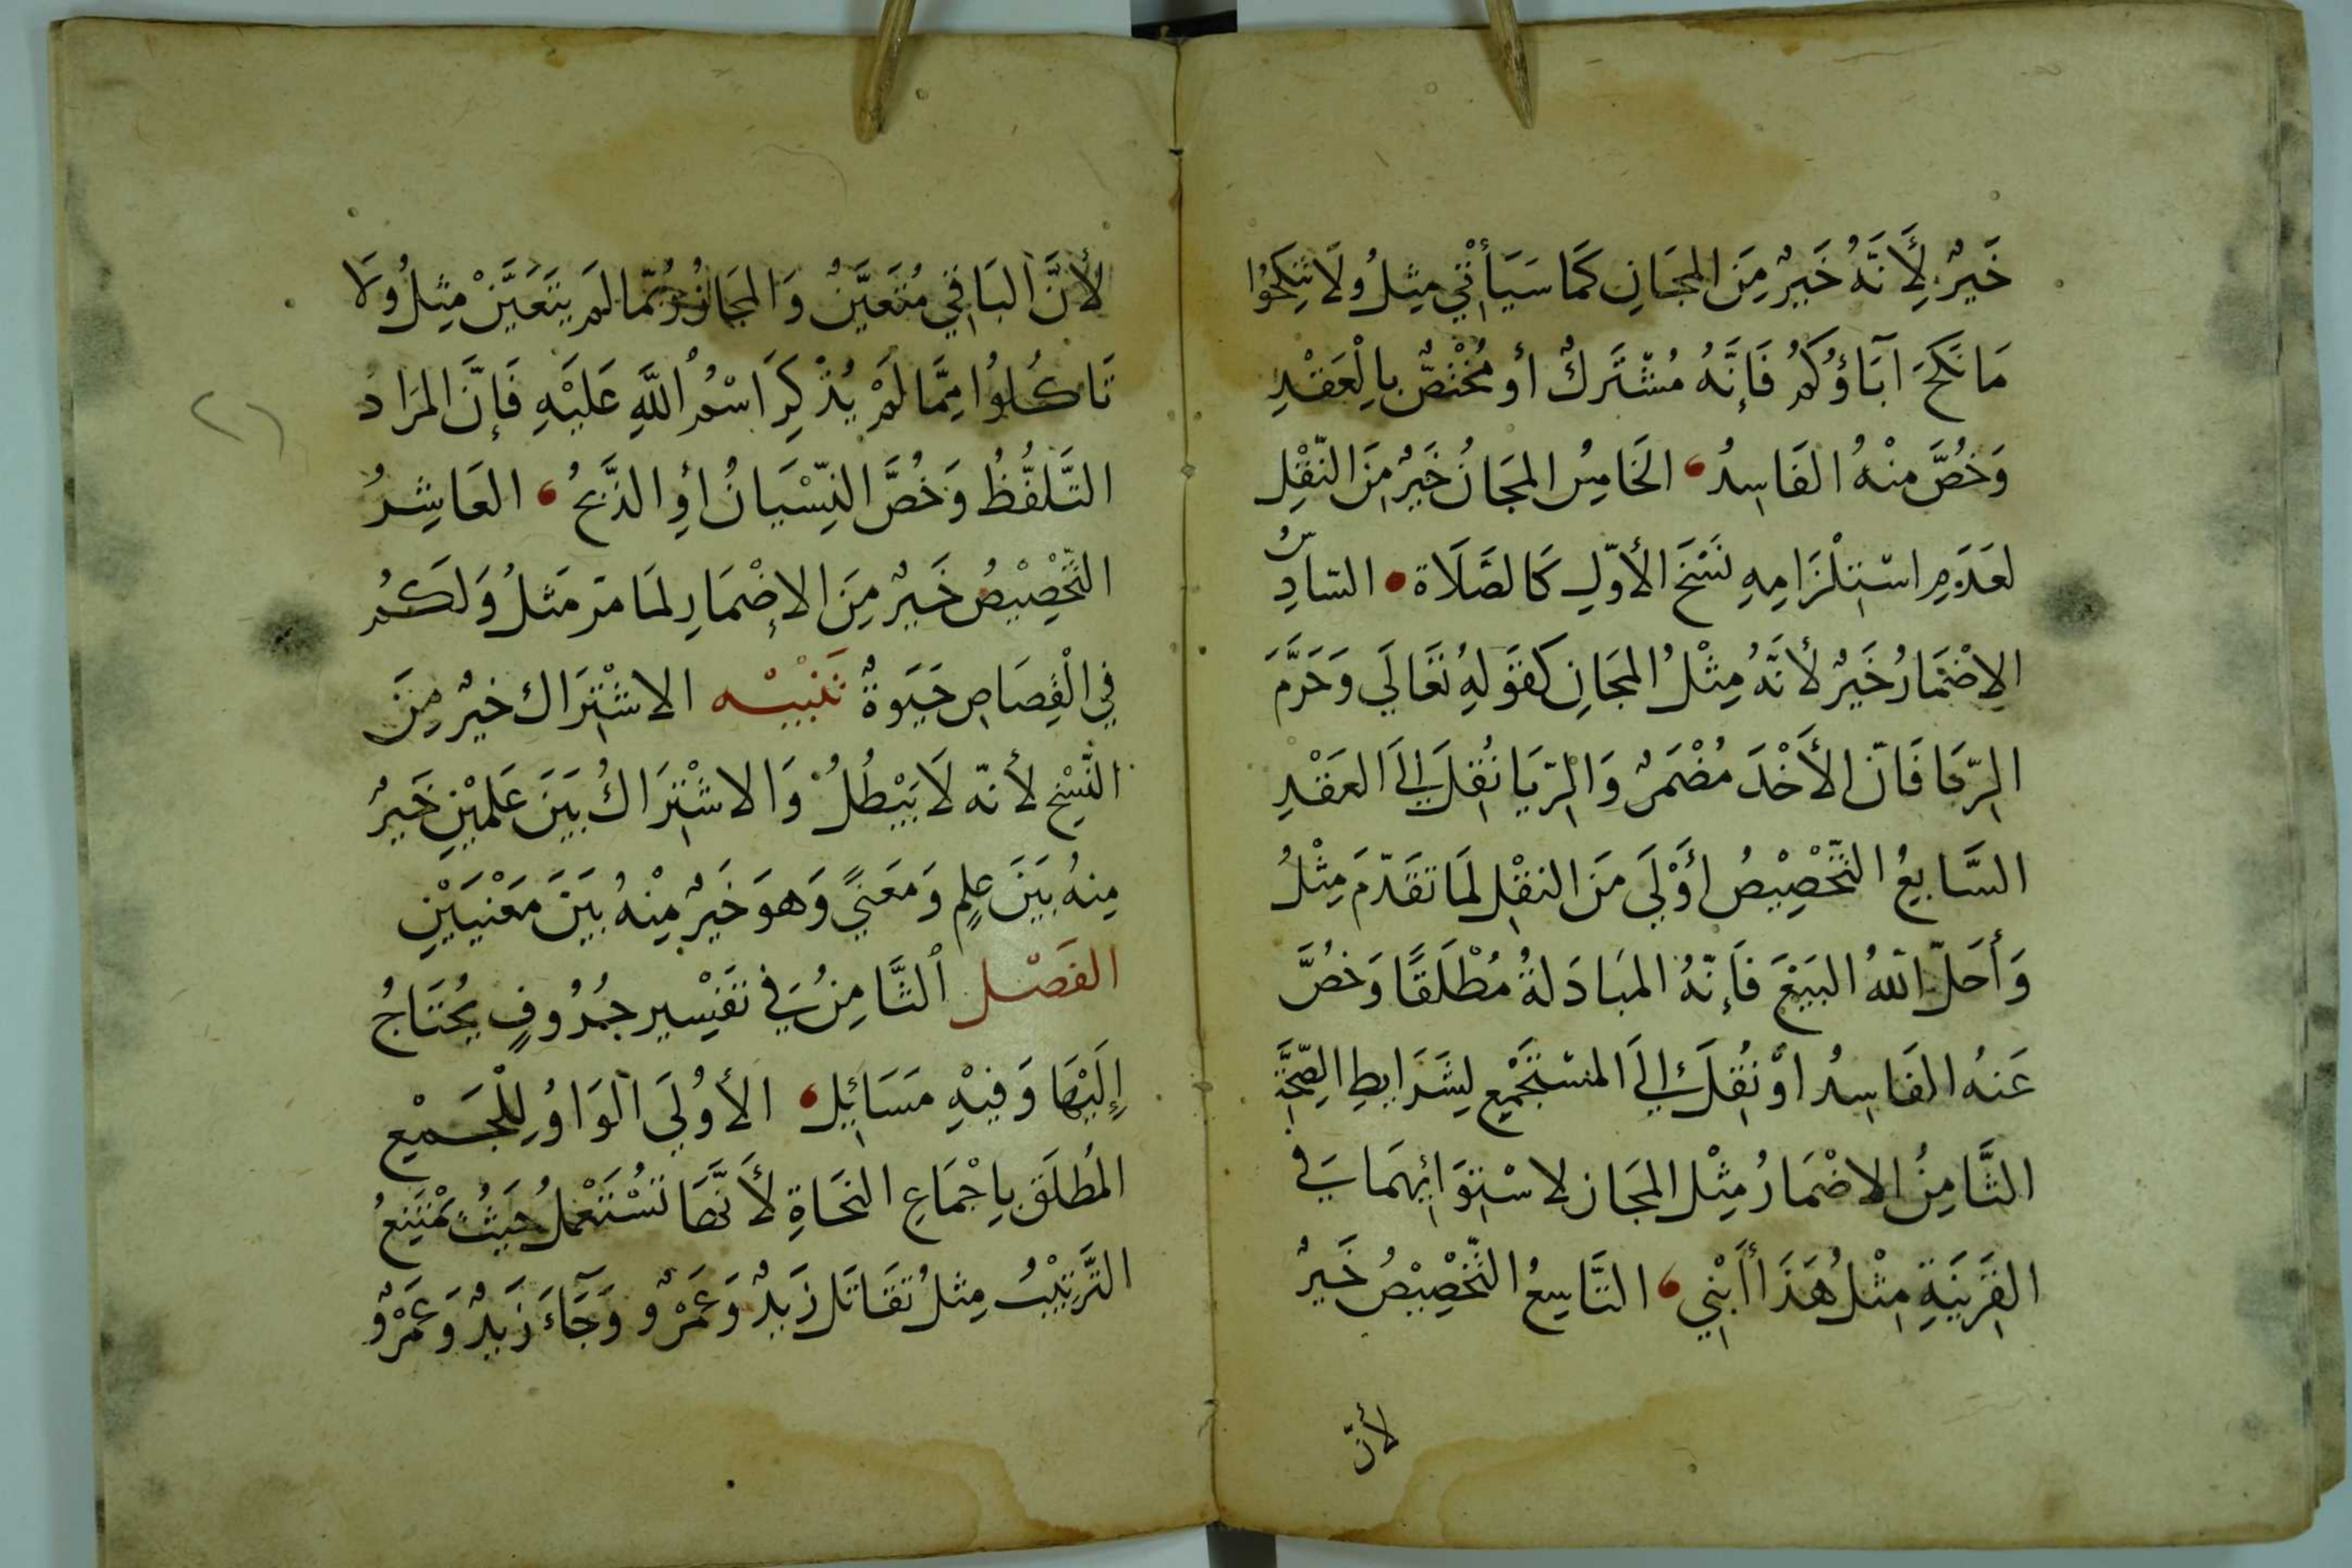 خَيْرٌ لِأَنَّهُ خَيْرٌ مِنَ المَجَازِ كَمَا سَيَأْتِي مِثِلُ وَلَا تَنْكِحُوا
مَا نَكَحَ آبَاؤُكُمْ فَإِنَّهُ مُشْتَرَكٌ أو مُخْتَصٌّ بِالْعَقْدِ
وَخُصَّ مِنْهُ الفَاسِدُ، الخَامِسُ المَجَازُ خَيْرٌ مِنَ النَّقْلِ
لعَدَمِ اسْتِلْزَامِهِ نَسْخَ الأوّلِ كَالصَّلَاة • السّادِسُ
الاِضْمَارُ خَيْرٌ لأنَّهُ مِثْلُ المَجَازِ كَقَوْلِهِ تَعَالَى وَحَرَّمَ
الرِّبَا فَانّ الأَخْذَ مُضْمَرٌ وَالرِّبَا نُقِلَ إِلَى العَقْدِ
السَّابِعُ التَّخْصِيْصُ أوْلَى مَنَ النقْلِ لَمَا تَقَدّمَ مِثْلُ
وَأَحَلّ اللّهُ البَيْعَ فَإنّهُ المبَادَلةُ مُطْلَقًا وَخُصَّ
عَنهُ الفَاسِدُ اوْ نُقِلَ إلى المسْتَجْمِعِ لِشَرَايطِ الصِّحَّةِ
الثَّامِنُ الاضْمَارُ مِثْل المجَاز لاسْتِوَائِهِمَا فِي
القَرِيْنَةِ مِثْلُ هَذَا ابْنِي ، التَّاسِعُ التَّخْصِيْصُ خَيرٌ
لأنّ
لأَنَّ البَاقِي مُتَعَيَّنٌ وَالمجَازُ رُبّمَا لَم يَتَعَيَّنْ مِثِلُ وَلَا
تَاكُلُوا مِمَّا لَمْ يُذْكَرِ اسْمُ اللَّهِ عَلَيْهِ فَإنَّ المَرَادُ
التَّلَفُّظُ وَخُصَّ النِّسْيَانُ اوِ الذَّبْحُ ، العَاشِرُ
التَّخْصِيْصُ خَيْرٌ مِنَ الإضْمَارِ لمَا مَرّ مَثلُ وَلَكُم
فِي الْقِصَاصِ حَيَوةٌ تَنْبِيْه الاشْتِرَاك خيرٌ مِنَ
النَّسْخِ لأنّه لَا يَبْطُلُ وَالاشْتِرَاكُ بَيْنَ عَلَمَيْنِ خَيرٌ
مِنهُ بَيْنَ عَلمٍ وَمعَنيً وَهوَ خَيرٌ مِنْهُ بَيْنَ مَعْنَيَيْنِ
الفَصْل الثَّامِنُ في تَفْسِيرِ حُرُوفٍ يُحْتَاجُ
إِلَيْهَا وَفِيْهِ مَسَائِل ، الأوُلَى الوَاوُ لِلْجَمْيعِ
المُطلَقِ بِاجْمَاعِ النحَاةِ لأَنَّهَا تَسْتَعْمَلُ حَيثُ يَمْتَنِعُ
التَّرْتِيْبُ مِثلُ تَقَاتَل زَيدٌ وَعَمْرٌو وَجَآءَ زَيدٌ وَعَمْرٌو